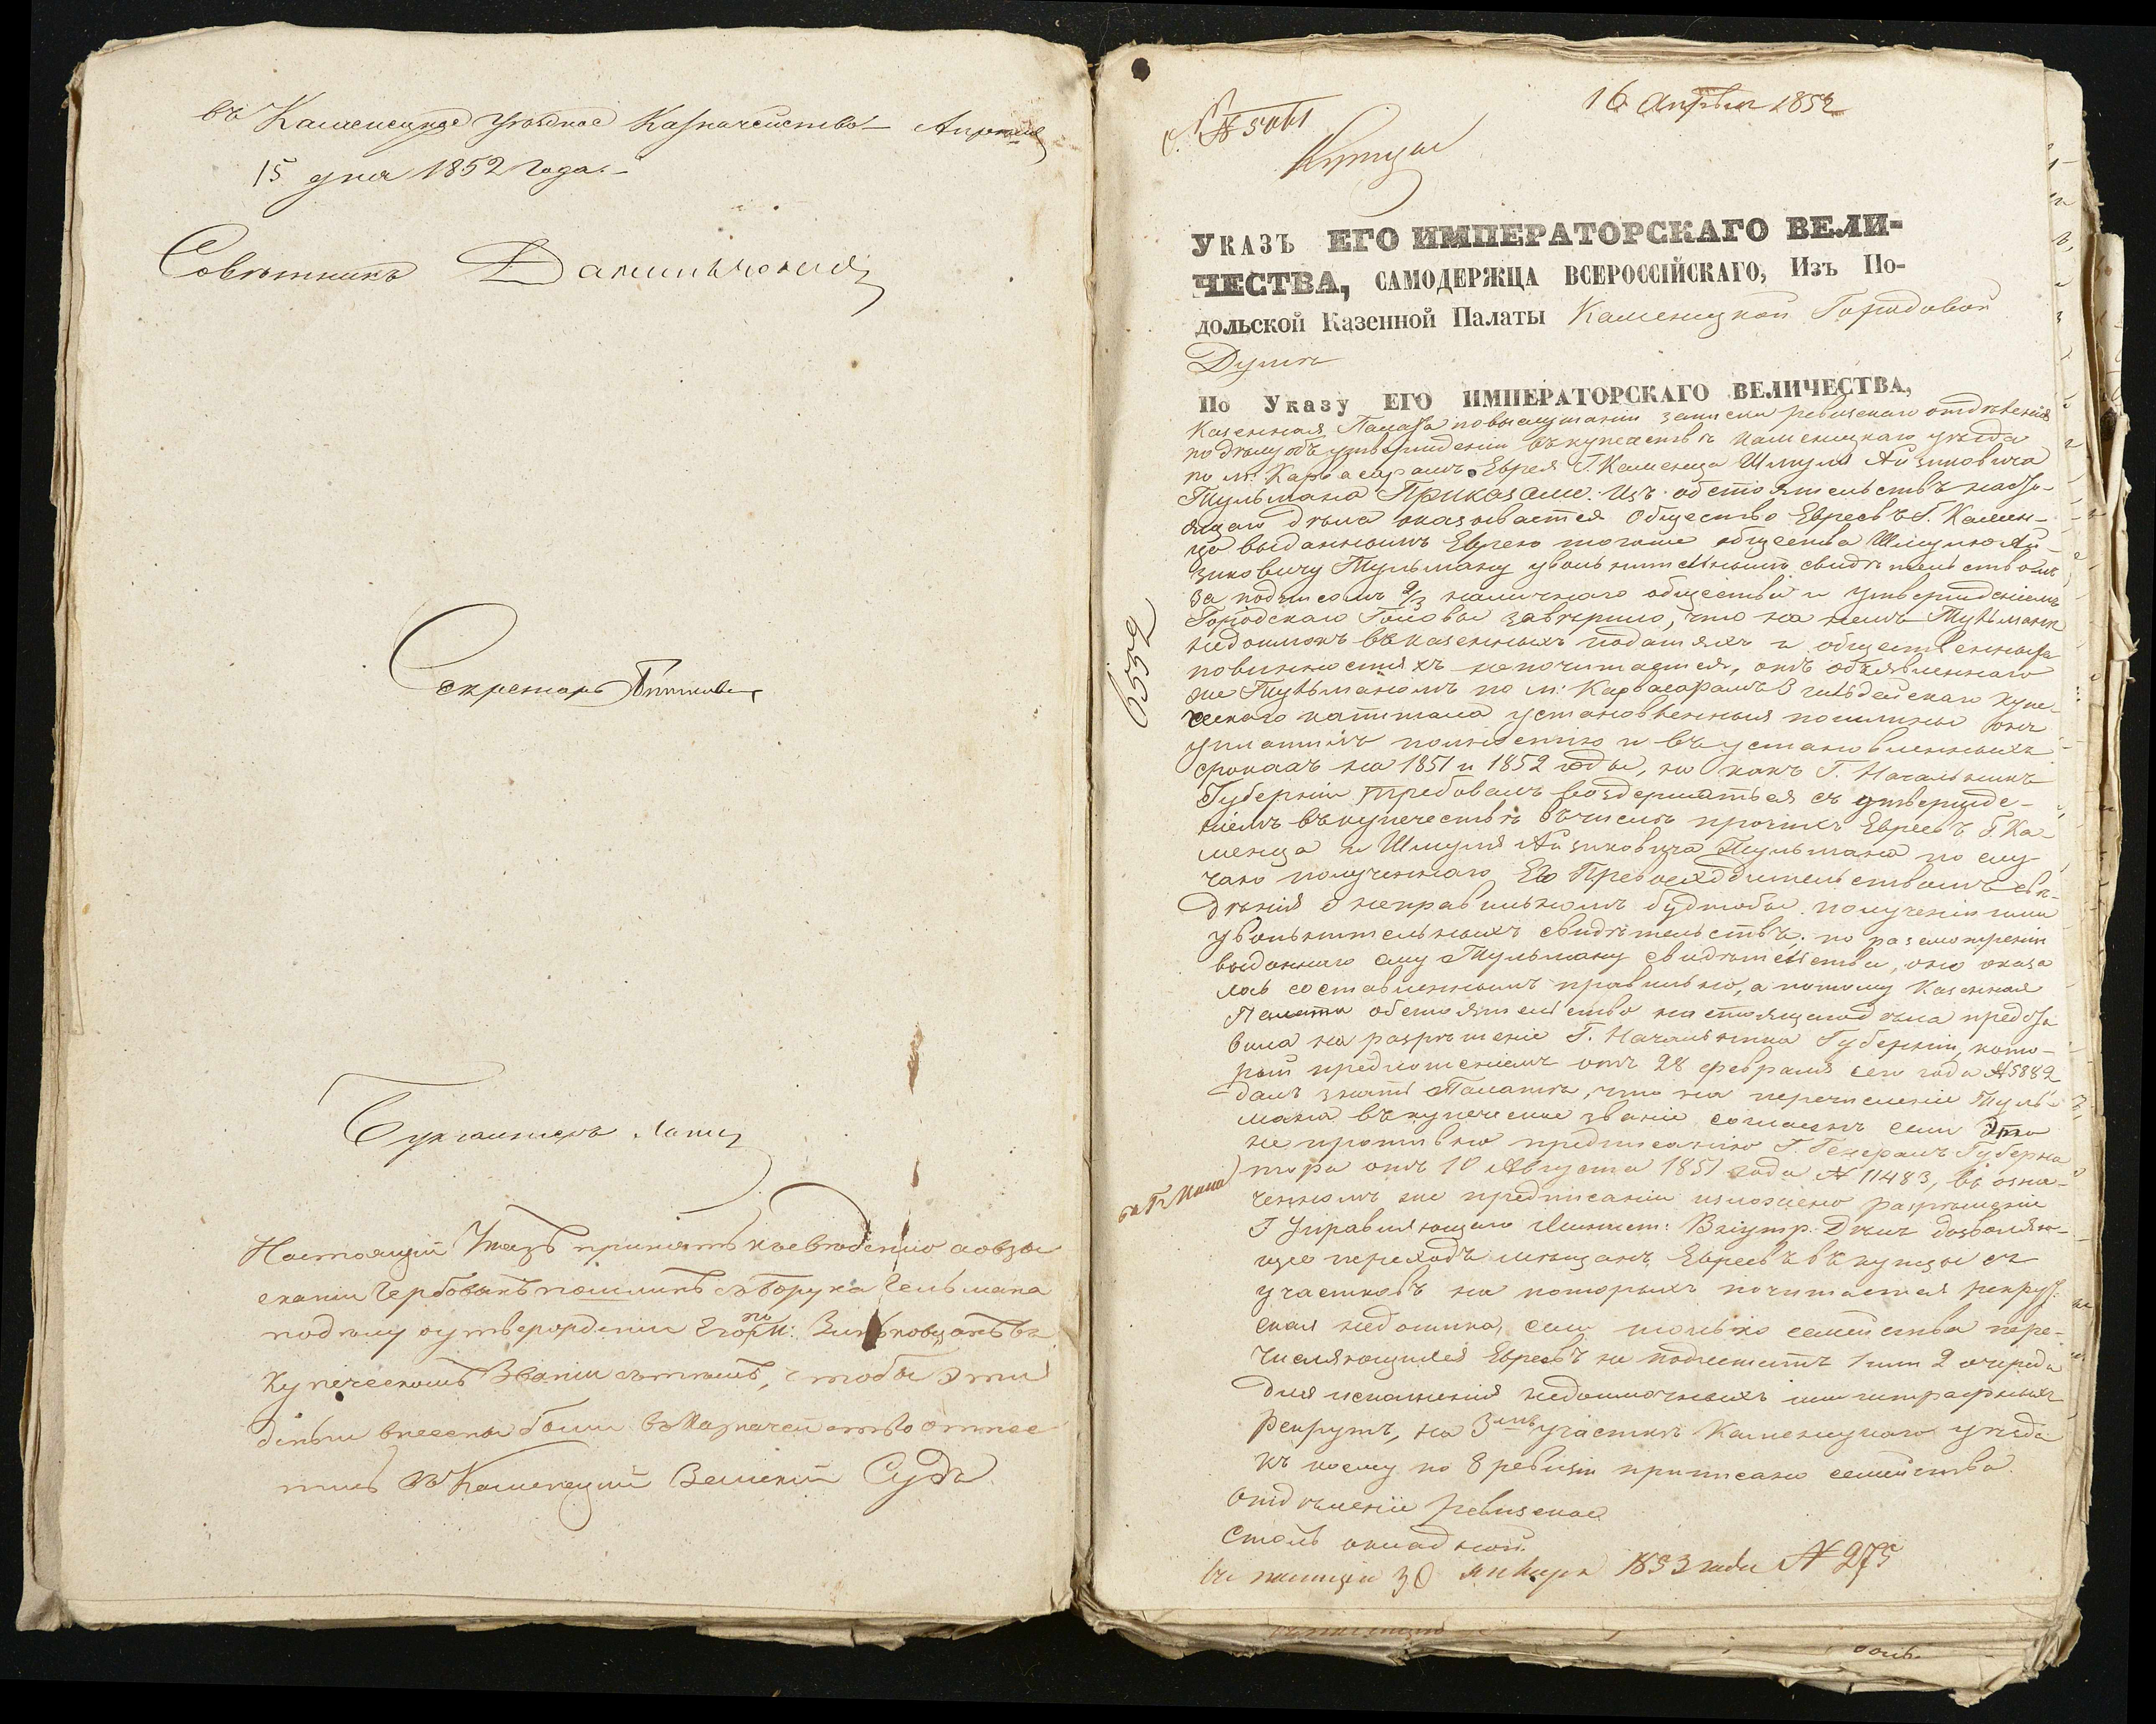 въ Каменецкое уѣздное Казначейство Апрѣля
15 дня 1852 года.
Совѣтникъ
Секретарь
Бухгалтеръ
Настоящій Указъ принять къ свѣденію а о взы
сканіи Гербовыхъ пошлинъ съ Боруха Гельмана
по дѣлу о утвержденіи его по м:
купеческомъ званіи, чтобы эти
деньги внесены были въ Казначейство отнес
тись въ Каменецкій Земскій Судъ
16 Апрѣля 1852
№ 5061
Купцы
УКАЗЪ ЕГО ИМПЕРАТОРСКАГО ВЕЛИ-
ЧЕСТВА, САМОДЕРЖЦА ВСЕРОССІЙСКАГО, Изъ По-
дольской Казенной Палаты Каменецкой Городовой
Думѣ
По Указу ЕГО ИМПЕРАТОРСКАГО ВЕЛИЧЕСТВА,
Казенная Палата по выслушаніи записки ревизскаго отдѣленія
по дѣлу объ утвержденіи въ купечествѣ Каменецкаго уѣзда
по м: Карвасарамъ Еврея Г. Каменца Шмуля Айзиковича
Тульмана Приказали: Изъ обстоятельствъ насто-
ящаго дѣла оказывается Общество Евреевъ Г. Камен-
ца выданнымъ Еврею тогоже общества Шмулю Ай-
зиковичу Тульману увольнительнымъ свидѣтельствомъ
за подписомъ 2/3 наличнаго общества и утвержденіемъ
Городскаго Головы завѣрило, что на немъ Тульманѣ
недоимокъ въ казенныхъ податяхъ и общественныхъ
повинностяхъ не почитается, отъ объявленнаго
же Тульманомъ по м: Карвасарамъ 3 гильдейскаго купе-
ческаго капитала установленныя пошлины онъ
уплатилъ полностію и въ установленныхъ
срокахъ на 1851 и 1852 годы, но какъ Г. Начальникъ
Губерніи требовалъ воздержаться съ утвержде-
ніемъ въ купечествѣ въ числѣ прочихъ Евреевъ Г. Ка-
менца и Шмуля Айзиковича Тульмана по слу-
чаю полученнаго Его Превосходительствомъ свѣ-
дѣнія о неправильномъ будтобы полученіи ими
увольнительныхъ свидѣтельствъ; по разсмотреніи
выданнаго ему Тульману свидѣтельства, оно оказа
лось составленнымъ правильно, а потому Казенная
Палата обстоятельство настоящаго дѣла предста
вила на разрѣшеніе Г. Начальника Губерніи, кото-
рый предложеніемъ отъ 28 февраля сего года № 5882
далъ знать Палатѣ, что на перечисленіе Туль-
мана въ купеческое званіе согласенъ если это
не противно предписанію Г. Генералъ Губерна
тора отъ 10 Августа 1851 года № 11483, въ озна-
ченномъ же предписаніи изложено разрѣшеніе
Г Управляющаго Минист: Внутр. Дѣлъ дозволяю-
щее переходъ мещанъ Евреевъ въ купцы съ
участковъ на которыхъ почитается рекрут:
ская недоимка, если только семейства пере-
числяющихся Евреевъ не подлежатъ 1 или 2 очереди
для исполненія недоимочныхъ или штрафныхъ
Рекрутъ, на 3мъ участкѣ Каменецкаго уѣзда
къ коему по 8 ревизіи приписано семейства
Отдѣленіе ревизское
Столъ окладной
въ полицію 30 Января 1853 года № 275
6552